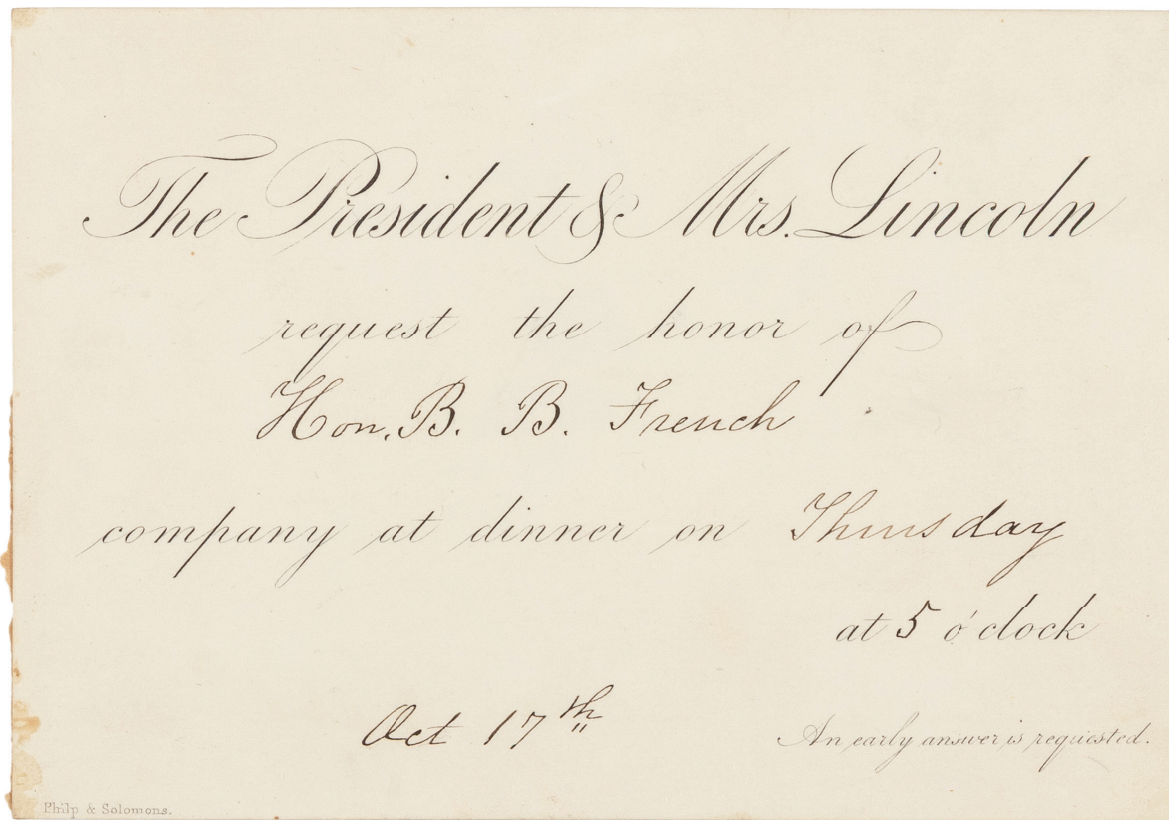 The President & Mrs. Lincoln
request the honor of
Hon. B. B. French
company at dinner on Thursday
at 5 o'clock
Oct 17th
An early answer is requested.
Philp & Solomons.